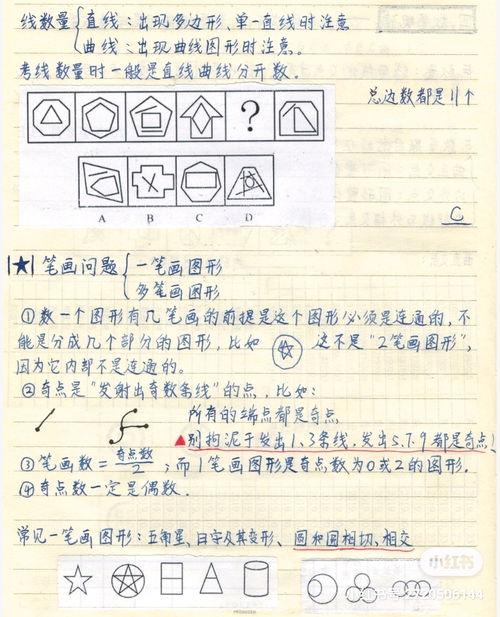 线数量{直线：出现多边形、单一直线时注意
曲线：出现曲线图形时注意。
考线数量时一般是直线曲线分开数。
总边数都是11个
?
A B C D
C
★ 笔画问题{一笔画图形
多笔画图形
①数一个图形有几笔画的前提是这个图形必须是连通的，不
能是分成几个部分的图形，比如 这不是“2笔画图形”，
因为它内部不是连通的。
②奇点是“发射出奇数条线”的点，比如：
所有的端点都是奇点
▲别拘泥于发出1、3条线，发出5、7、9都是奇点！
③笔画数=奇点数/2；而1笔画图形是奇点数为0或2的图形。
④奇点数一定是偶数。
常见一笔画图形：五角星、日字及其变形、圆和圆相切、相交
小红书